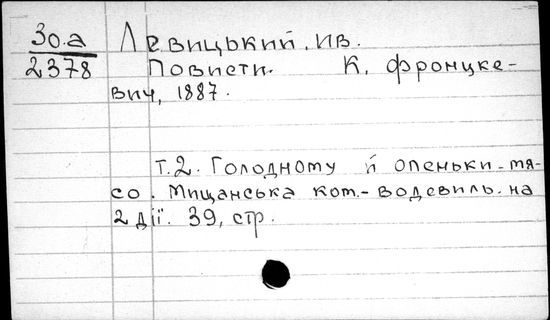 30.а Левицький, Ив.
2378 Повисти. К. Фронцке-
вич, 1887.
Т.2. Голодному й опеньки-мя-
со. Мищанська ком.-водевиль. на
2 дії. 39, стр.